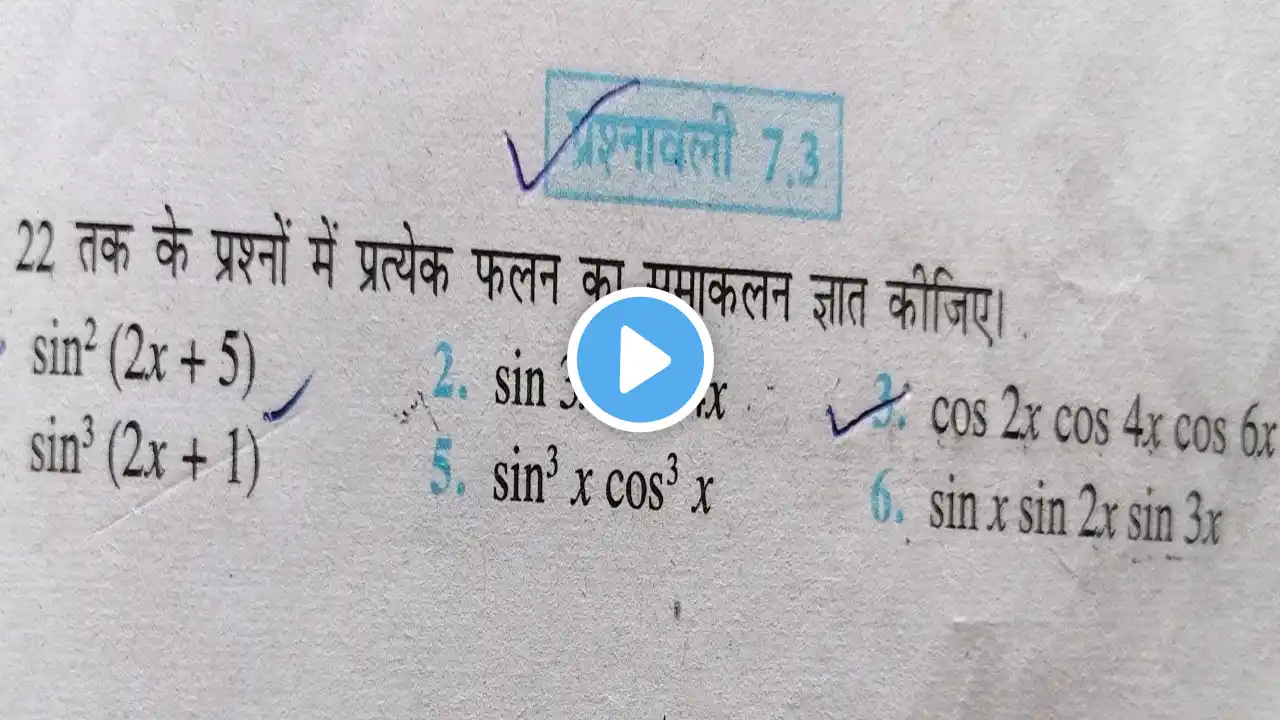 प्रश्नावली 7.3
22 तक के प्रश्नों में प्रत्येक फलन का समाकलन ज्ञात कीजिए।
sin² (2x + 5) 2. sin 3. cos 2x cos 4x cos 6x
sin³ (2x + 1) 5. sin³ x cos³ x 6. sin x sin 2x sin 3x